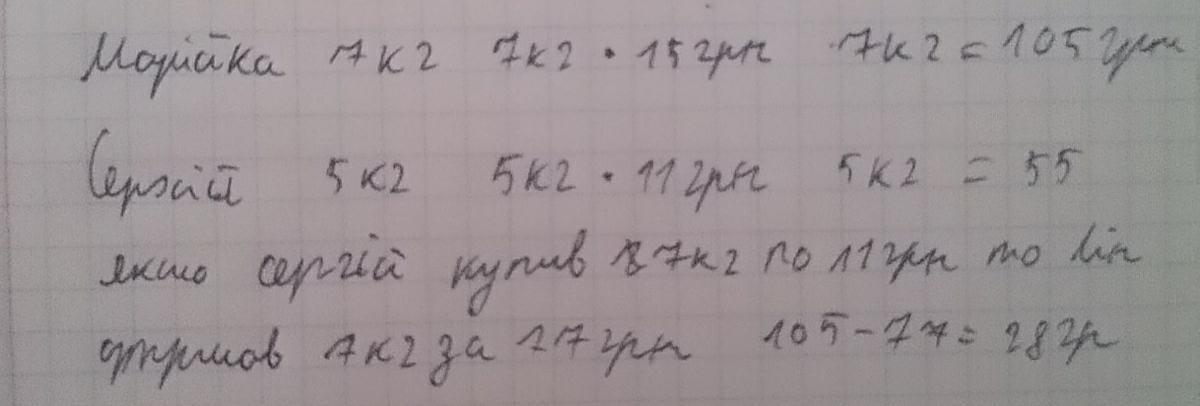 Марійка 7кг 7кг · 15грн 7кг = 105грн
Сергій 5кг 5кг · 11грн 5кг = 55
якшо сергій купив 7кг по 11грн то він
7кг за грн 105-77= 28гр